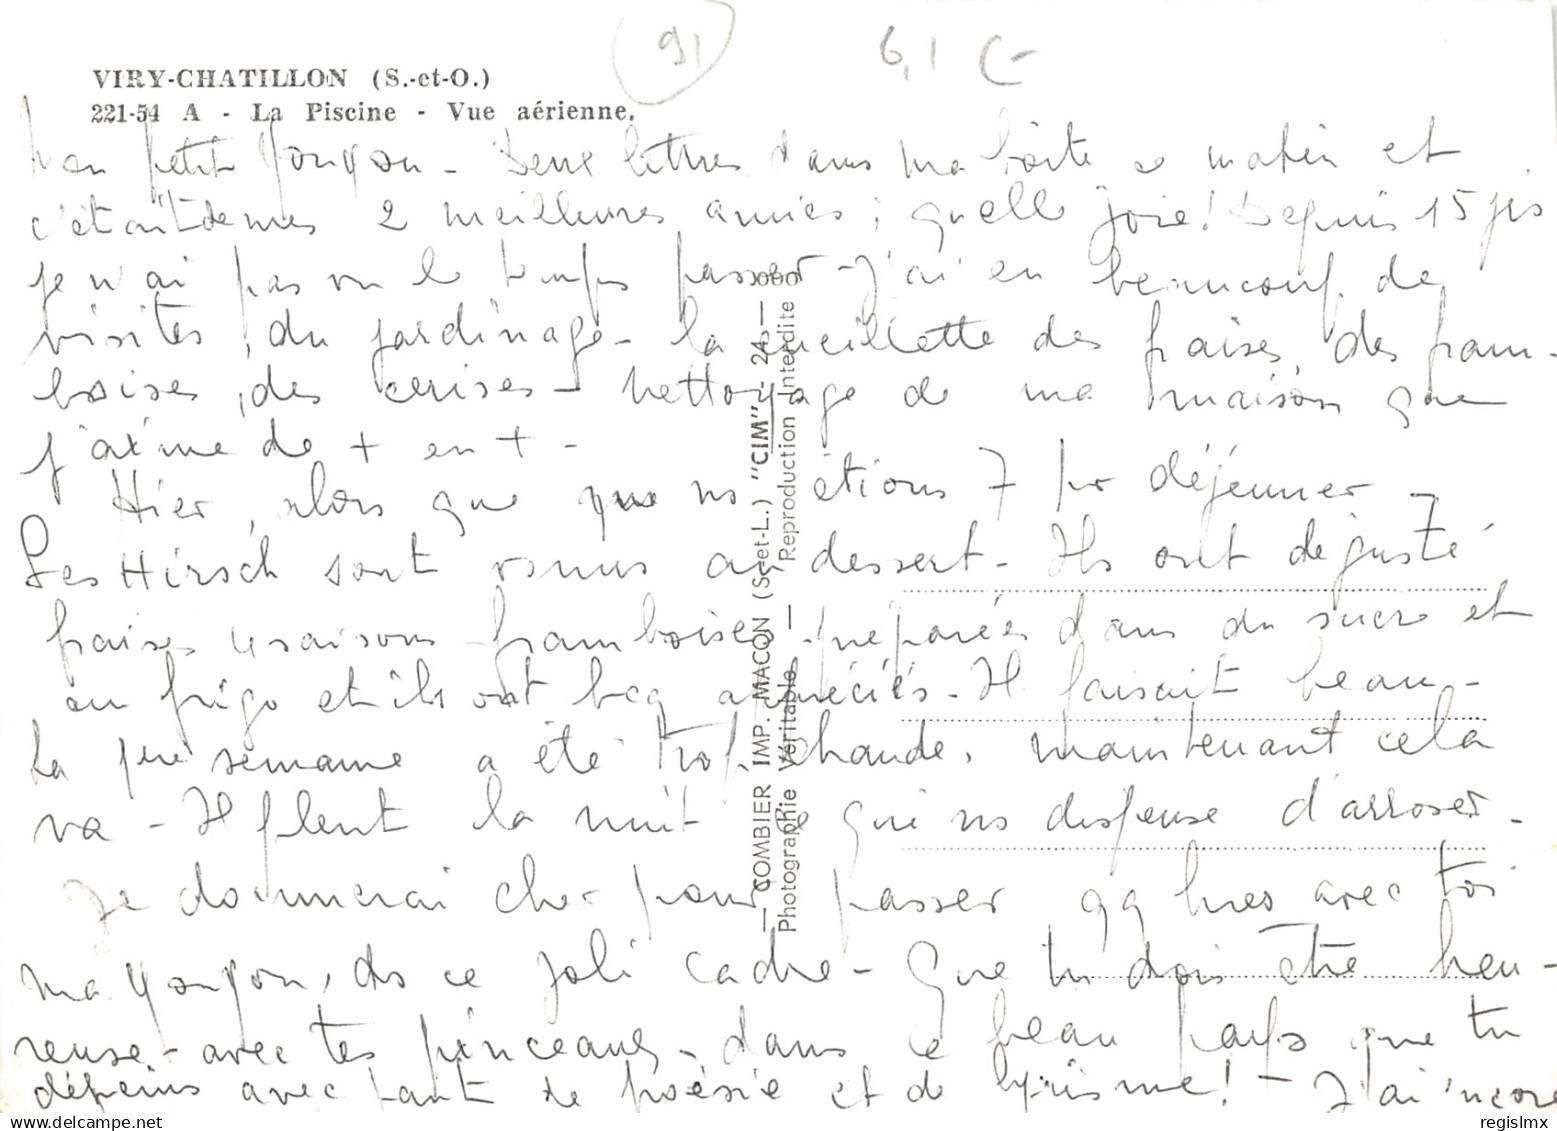 91
6,1 C-
VIRY-CHATILLON (S.-et-O.)
221-54 A - La Piscine - Vue aérienne.
Mon petit Yougou - Deux lettres dans ma boîte ce matin et
c'était de mes 2 meilleures amies ; quelle joie ! Depuis 15 jrs
je n'ai pas vu le temps passer - J'ai eu beaucoup de
visites, du jardinage - la cueillette des fraises, des fram-
boises, des cerises - nettoyage de ma maison que
j'aime de + en + -
Hier, alors que que ns étions 7 pr déjeuner -
Les Hirsch sont venus au dessert - Ils ont dégusté
fraises framboises préparées dans du sucre et
au frigo et ils ont bcq appréciés - Il faisait beau -
La 1ère semaine a été trop chaude, maintenant cela
va - Il pleut la nuit ce qui ns dispense d'arroser -
Je donnerai cher pour passer qq hres avec toi
ma Yougou, ds ce joli cadre - Que tu dois être heu-
reuse - avec tes pinceaux, dans ce beau pays que tu
dépeins avec tant de poésie et de lyrisme ! - J'ai encore
— COMBIER IMP. MACON (S.-et-L.) "CIM" - 24 —
Photographie Véritable — Reproduction Interdite
delcampe.net
regislmx